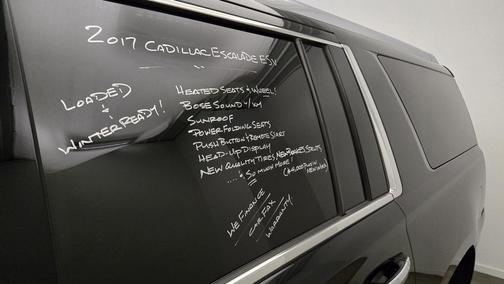 2017 CADILLAC ESCALADE ESV
LOADED
&
WINTER READY!
HEATED SEATS & WHEEL!
BOSE SOUND W/ XM
SUNROOF
POWER FOLDING SEATS
PUSH BUTTON & REMOTE START
HEAD-UP DISPLAY
NEW QUALITY TIRES, NEW BRAKES, STRUTS
.... & SO MUCH MORE!
WE FINANCE
CARFAX
WARRANTY!